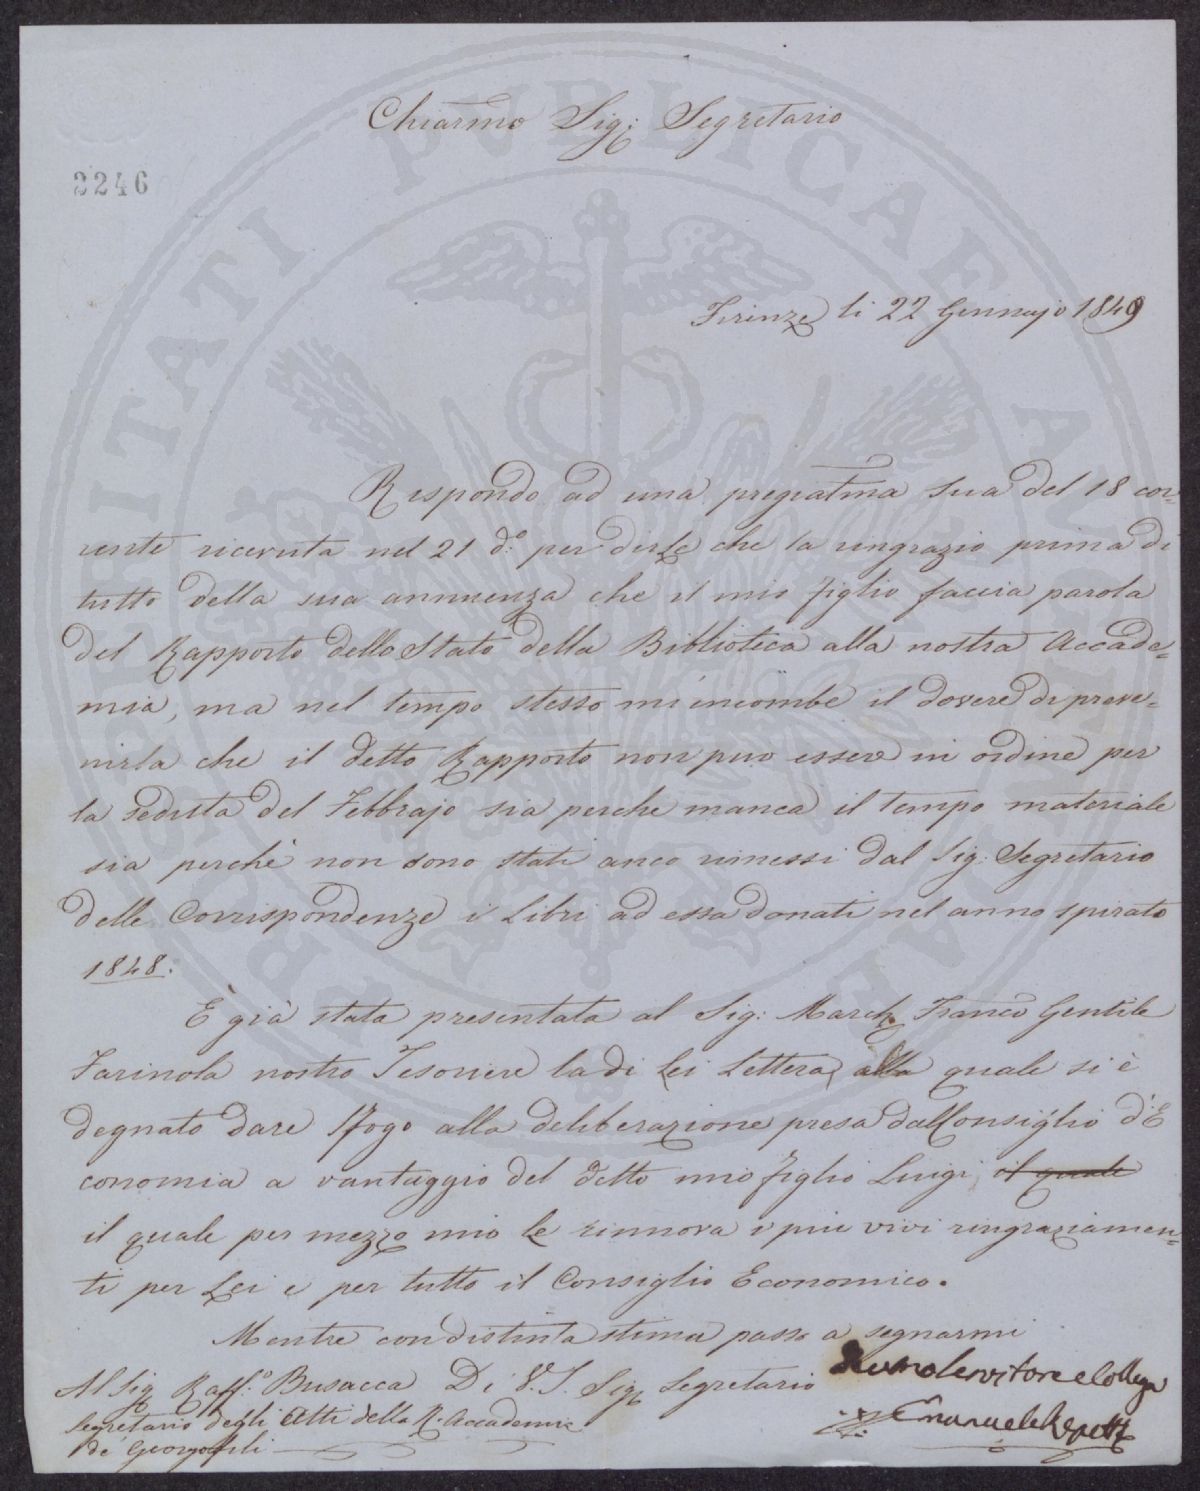 Chiarmo Sig: Segretario
2246
Firenze li 22 Gennajo 1849
Rispondo ad una pregiatma sua del 18 cor-
rente ricevuta nel 21 do: per dirLe che la ringrazio prima di
tutto della sua annuenza che il mio figlio faccia parola
del Rapporto dello Stato della Biblioteca alla nostra Accade=
mia, ma nel tempo stesso mi incombe il dovere di preve=
nirla che il detto Rapporto non puo essere in ordine per
la seduta del Febbrajo sia perche manca il tempo materiale
sia perchè non sono stati anco rimessi dal Sig: Segretario
delle Corrispondenze i Libri ad essa donati nel anno spirato
1848.
È già stata presentata al Sig: March Franco Gentile
Farinola nostro Tesoriere la di Lei Lettera alla quale si è
degnato dare sfogo alla deliberazione presa dal Consiglio d'E
conomia a vantaggio del detto mio figlio Luigi, il quale
il quale per mezzo mio le rinnova i piu vivi ringraziamen=
ti per Lei e per tutto il Consiglio Economico.
Mentre con distinta stima passo a segnarmi
Al Sig Raff:o Busacca Di V.S. Sig Segretario
Segretario degli Atti della R. Accademia
de' Georgofili
servitore e Collega
Emanuele Repetti
PROSPERITATI PVBLICAE AVGENDAE